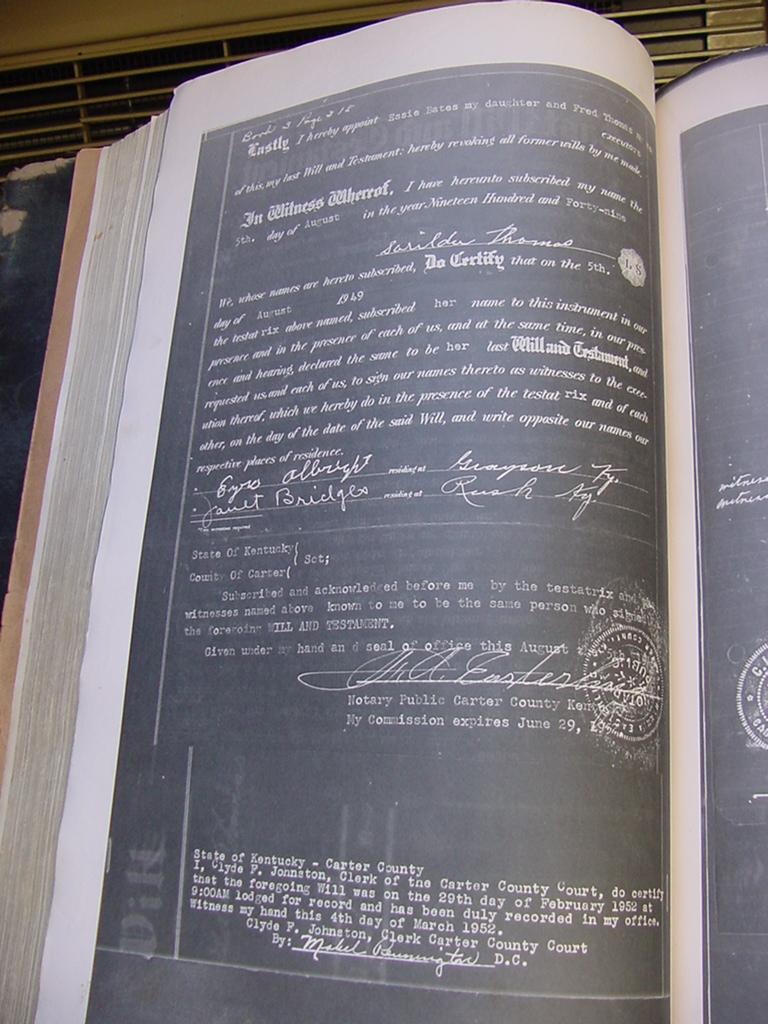 Book 3 Page 315
Lastly I hereby appoint Essie Bates my daughter and Fred Thomas
executors
of this, my last Will and Testament: hereby revoking all former wills by me made.
In Witness Whereof, I have hereunto subscribed my name the
5th. day of August in the year Nineteen Hundred and Forty-nine
Sarilda Thomas
L S
We, whose names are hereto subscribed, Do Certify that on the 5th.
day of August 1949
the testatrix above named, subscribed her name to this instrument in our
presence and in the presence of each of us, and at the same time, in our pres-
ence and hearing, declared the same to be her last Will and Testament, and
requested us, and each of us, to sign our names thereto as witnesses to the exe-
cution thereof, which we hereby do in the presence of the testatrix and of each
other, on the day of the date of the said Will, and write opposite our names our
respective places of residence.
Albright residing at Grayson Ky.
Janet Bridges residing at Rush Ky
State Of Kentucky(
( Sct;
County Of Carter(
Subscribed and acknowledged before me by the testatrix and
witnesses named above known to me to be the same person who signed
the foregoing WILL AND TESTAMENT.
Given under my hand an d seal of office this August
Notary Public Carter County
My Commission expires June 29,
State of Kentucky - Carter County
I, Clyde F. Johnston, Clerk of the Carter County Court, do certify
that the foregoing Will was on the 29th day of February 1952 at
9:00AM lodged for record and has been duly recorded in my office.
Witness my hand this 4th day of March 1952.
Clyde F. Johnston, Clerk Carter County Court
By: Mabel Pennington D.C.